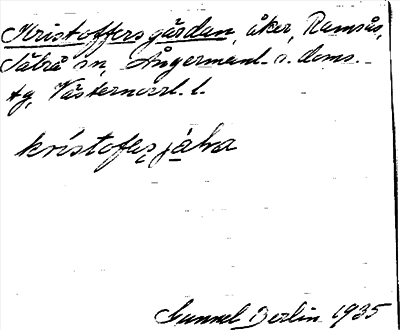 Kristoffersgärdan, åker, Ramsås,
Säbrå sn, Ångermanl. s. doms.-
tg, Västernorrl. l.
kristofesjáɫna
Gunnel Berlin 1935